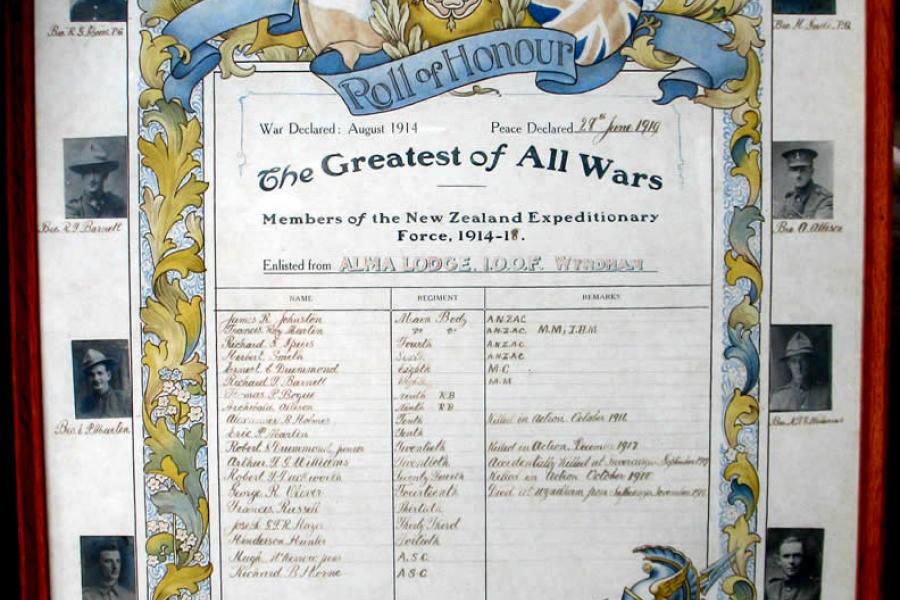 Roll of Honour
War Declared: August 1914 Peace Declared 28th June 1919
The Greatest of All Wars
Members of the New Zealand Expeditionary
Force, 1914-18.
Enlisted from ALMA LODGE. I.O.O.F. WYNDHAM
NAME REGIMENT REMARKS
James R. Johnston Main Body A.N.Z.A.C
Francis Martin " " A.N.Z.A.C. M.M; I.H.M
Richard S. Speirs Fourth A.N.Z.A.C
Herbert Smith Sixth A.N.Z.A.C
Ernest C Drummond Eighth M.C
Richard Barnett M.M.
Thomas P. Bogue Ninth R B
Archibald Ninth R B
Alexander B Holmes Tenth Killed in Action. October 1916
Eric P. Martin Tenth
Robert Drummond, junior Twentieth Killed in Action, December 1917
Arthur Williams Twentieth Accidentally Killed at September
Robert Duckworth Twenty Fourth Killed in Action October
George R. Fourteenth Died at Wyndham from November
Francis Russell Thirtieth
Joseph Thirty Third
Henderson Hunter Fortieth
Hugh A.S.C.
Richard B. A.S.C
Bro. R. S. Speirs. P.G
Bro. H. P.G.
Bro. Barnett
Bro. A.
Bro. E. P. Martin
Bro.